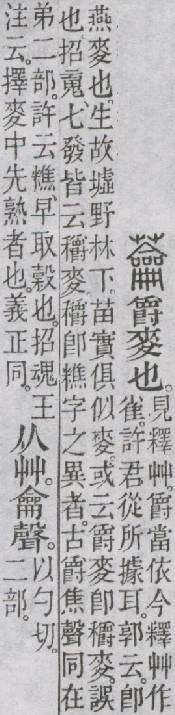 蘥 爵麥也。
見釋艸。爵當依今釋艸作
雀。許君從所據耳。郭云。卽
燕麥也。生故墟野林下。苗實俱似麥。或云爵麥卽穱麥。誤
也。招䰟七發皆云穱麥。穱卽𥼚字之異者。古爵焦聲同在
弟二部。許云𥼚、早取穀也。招魂王
注云。擇麥中先熟者也。義正同。
从艸。龠聲。
以勺切。
二部。